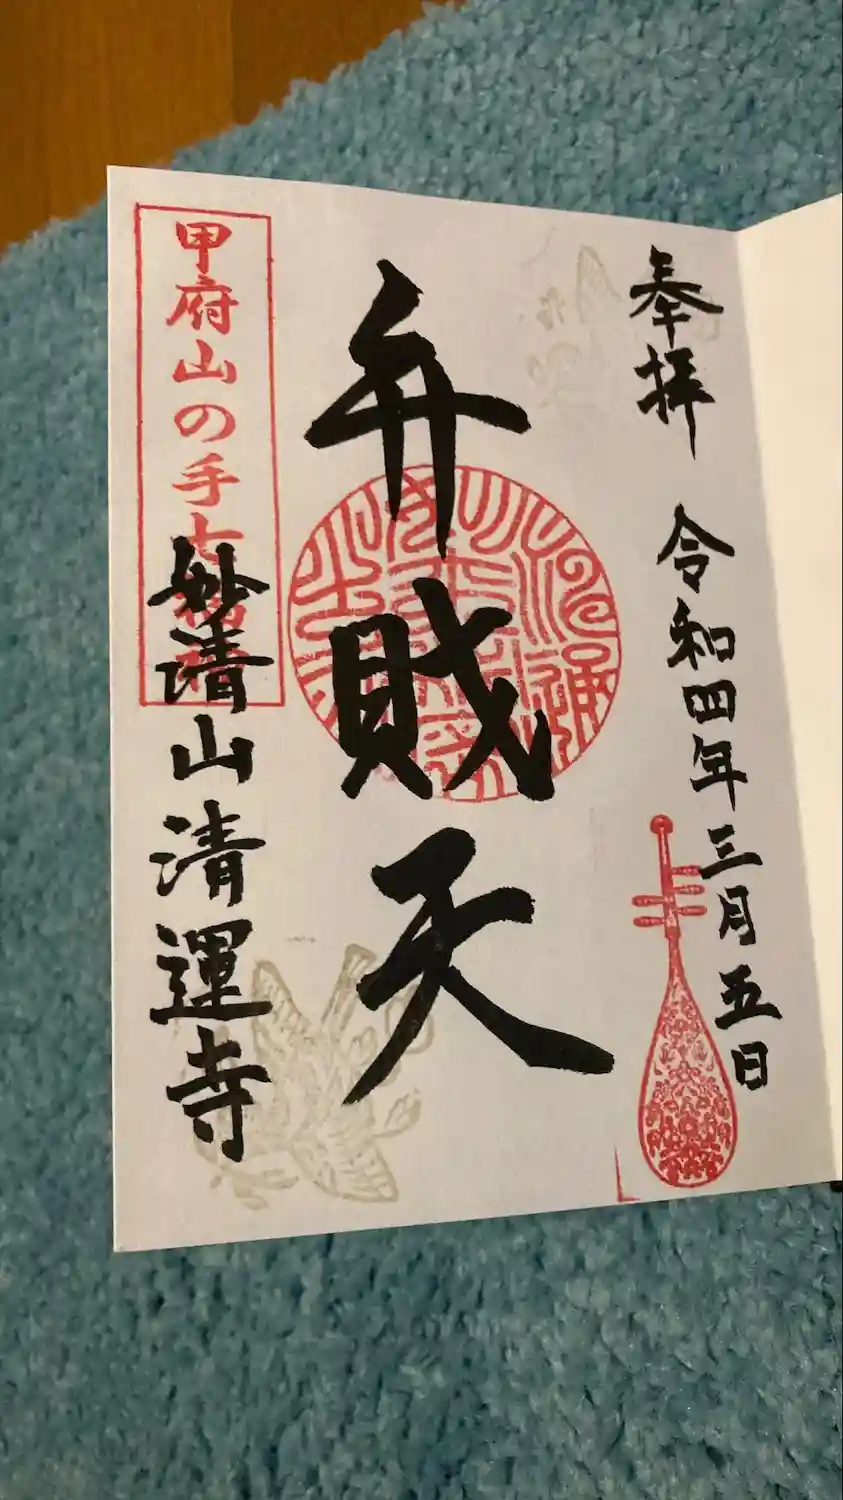 奉拝 令和四年三月五日
弁財天
甲府山の手七福神
妙清山清運寺